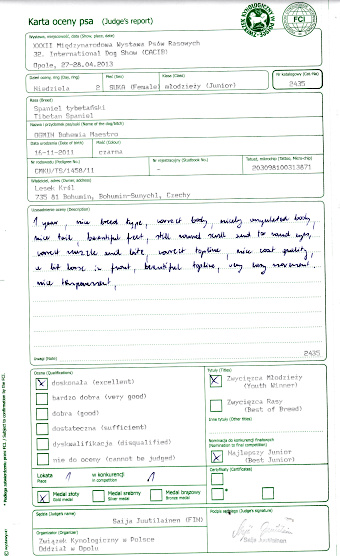 Karta oceny psa (Judge's report)
ZWIĄZEK KYNOLOGICZNY W POLSCE
FCI
Wystawa, miejscowość, data (Show, place, date)
XXXII Międzynarodowa Wystawa Psów Rasowych
32. International Dog Show (CACIB)
Opole, 27-28.04.2013
Dzień oceny, ring (Day, ring) Płeć (Sex) Klasa (Class) Nr katalogowy (Cat-No)
Niedziela 2 SUKA (Female) młodzieży (Junior) 2435
Rasa (Breed)
Spaniel tybetański
Tibetan Spaniel
Nazwa i przydomek psa/suki (Name of the dog/bitch)
OSMIN Bohemia Maestro
Data urodzenia (Date of birth) Maść (Colour)
16-11-2011 czarna
Nr rodowodu (Pedigree No.) Nr rejestracyjny (Studbook No.) Tatuaż, microchip (Tattoo, Micro-chip)
CMKU/TS/1458/11 - 203098100313871
Właściciel, adres (Owner, address)
Lesek Król
735 81 Bohumin, Bohumin-Sunychl, Czechy
Uzasadnienie oceny (Description)
1 year, nice breed type, correct body, nicely angulated body,
nice tail, beautiful feet, still round skull and too round eyes,
correct muzzle and bite, correct topline, nice coat quality,
a bit loose in front, beautiful topline, very easy movement.
nice temperament,
Uwagi (Note) 2435
Ocena (Qualifications) Tytuły (Titles)
doskonała (excellent) Zwycięzca Młodzieży
(Youth Winner)
hardzo dobra (very good)
dobra (good) Zwycięzca Rasy
(Best of Breed)
dostateczna (sufficient) Inne tytuły (Other titles)
dyskwalifikacja (disqualified) Nominacja do konkurencji finałowych
(Nomination to final competition)
nie do oceny (cannot be judged) Najlepszy Junior
(Best Junior)
Lokata 1 w konkurencji 1 Certyfikaty (Certificates)
Place in competition
Medal złoty Medal srebrny Medal brązowy
Gold medal Silver medal Bronze medal
Sędzia (Judge's name) Podpis sędziego (Judge's signature)
Saija Juutilainen (FIN) Saija Juutilainen
Organizator (Organizer)
Związek Kynologiczny w Polsce
Oddział w Opolu